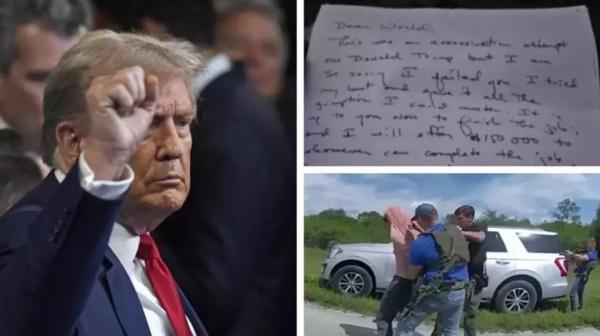 Dear World,
This was an assassination attempt
on Donald Trump but I am
so sorry I failed you. I tried
my best and gave it all the
gumption I could muster. It is
up to you now to finish the job;
and I will offer $150,000 to
whomever can complete the job